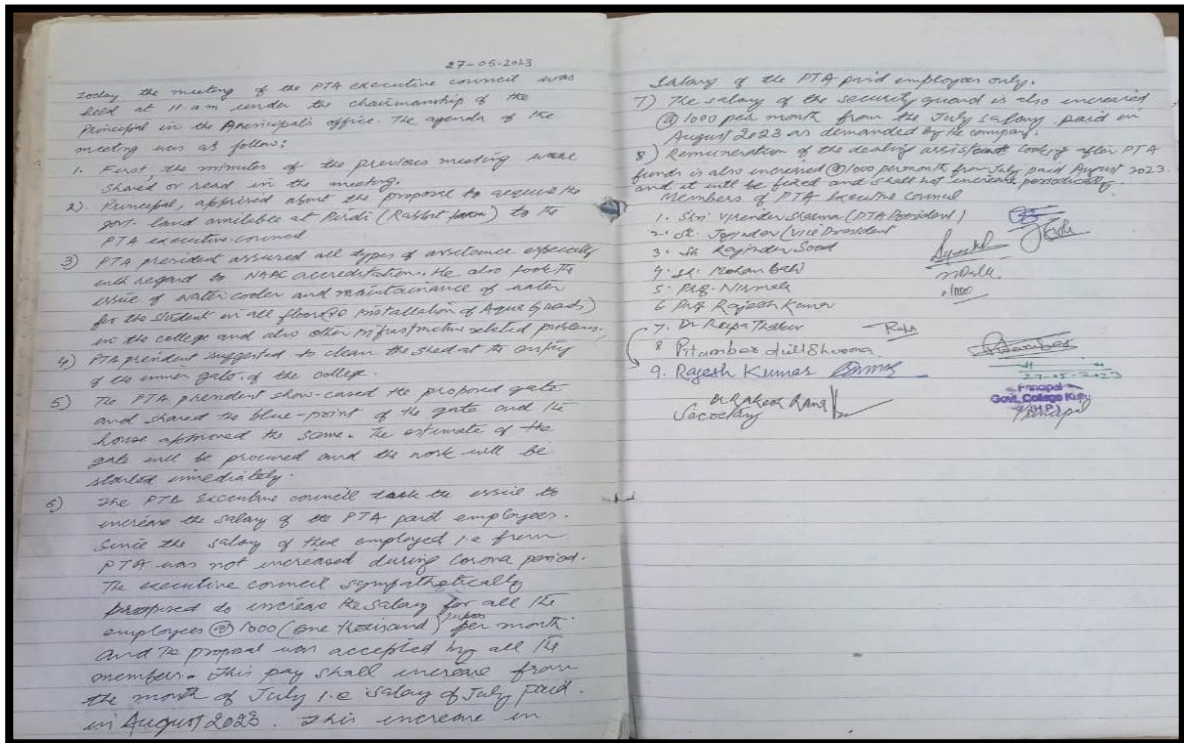 27-05-2023
Today the meeting of the PTA executive council was
held at 11 a.m under the chairmanship of the
Principal in the Principal's office. The agenda of the
meeting was as follow:
1. First, the minutes of the previous meeting were
shared or read in the meeting.
2). Principal, apprised about the proposal to acquire the
govt. land available at Pirdi (Rabbit farm) to the
PTA executive council
3) PTA president assured all types of assistance especially
with regard to NAAC accreditation. He also took the
issue of water cooler and maintainance of water
for the student in all floor installation of Aqua Guards)
in the college and also other infrastructure related problems.
4) PTA president suggested to clean the shed at the
of the inner gate of the college.
5) The PTA president show-cased the proposed gate
and shared the blue-point of the gate and the
house approved the same. The estimate of the
gate will be procured and the work will be
started immediately.
6) The PTA Executive council took the issue to
increase the salary of the PTA paid employees.
Since the salary of these employed i.e from
PTA was not increased during Corona period.
The executive council sympathetically
proposed to increase the salary for all the
employees @ 1000 (one thousand) per month
and the proposal was accepted by all the
members. This pay shall increase from
the month of July i.e salary of July paid.
in August 2023. This increase in
salary of the PTA paid employees only.
7) The salary of the security guard is also increased
@ 1000 per month from the July salary paid in
August 2023 as demanded by the company.
8) Remuneration of the dealing assistant looking after PTA
funds is also increased @ 1000 per month from July paid August 2023.
and it will be fixed and shall not increase periodically.
Members of PTA Executive Council
1. Shri Virender Sharma (PTA President)
2. Sh. Joginder (Vice President
3. Sh Rajinder Sood
4. Sh. Mohan
5. Prof. Nirmala
6 Prof Rajesh Kumar
7. Dr Thakur
8 Pitamber Sharma
9. Rajesh Kumar
Dr Rakesh Rana
Secretary
27-05-2023
Principal
Govt. College
(H.P.)
Principal